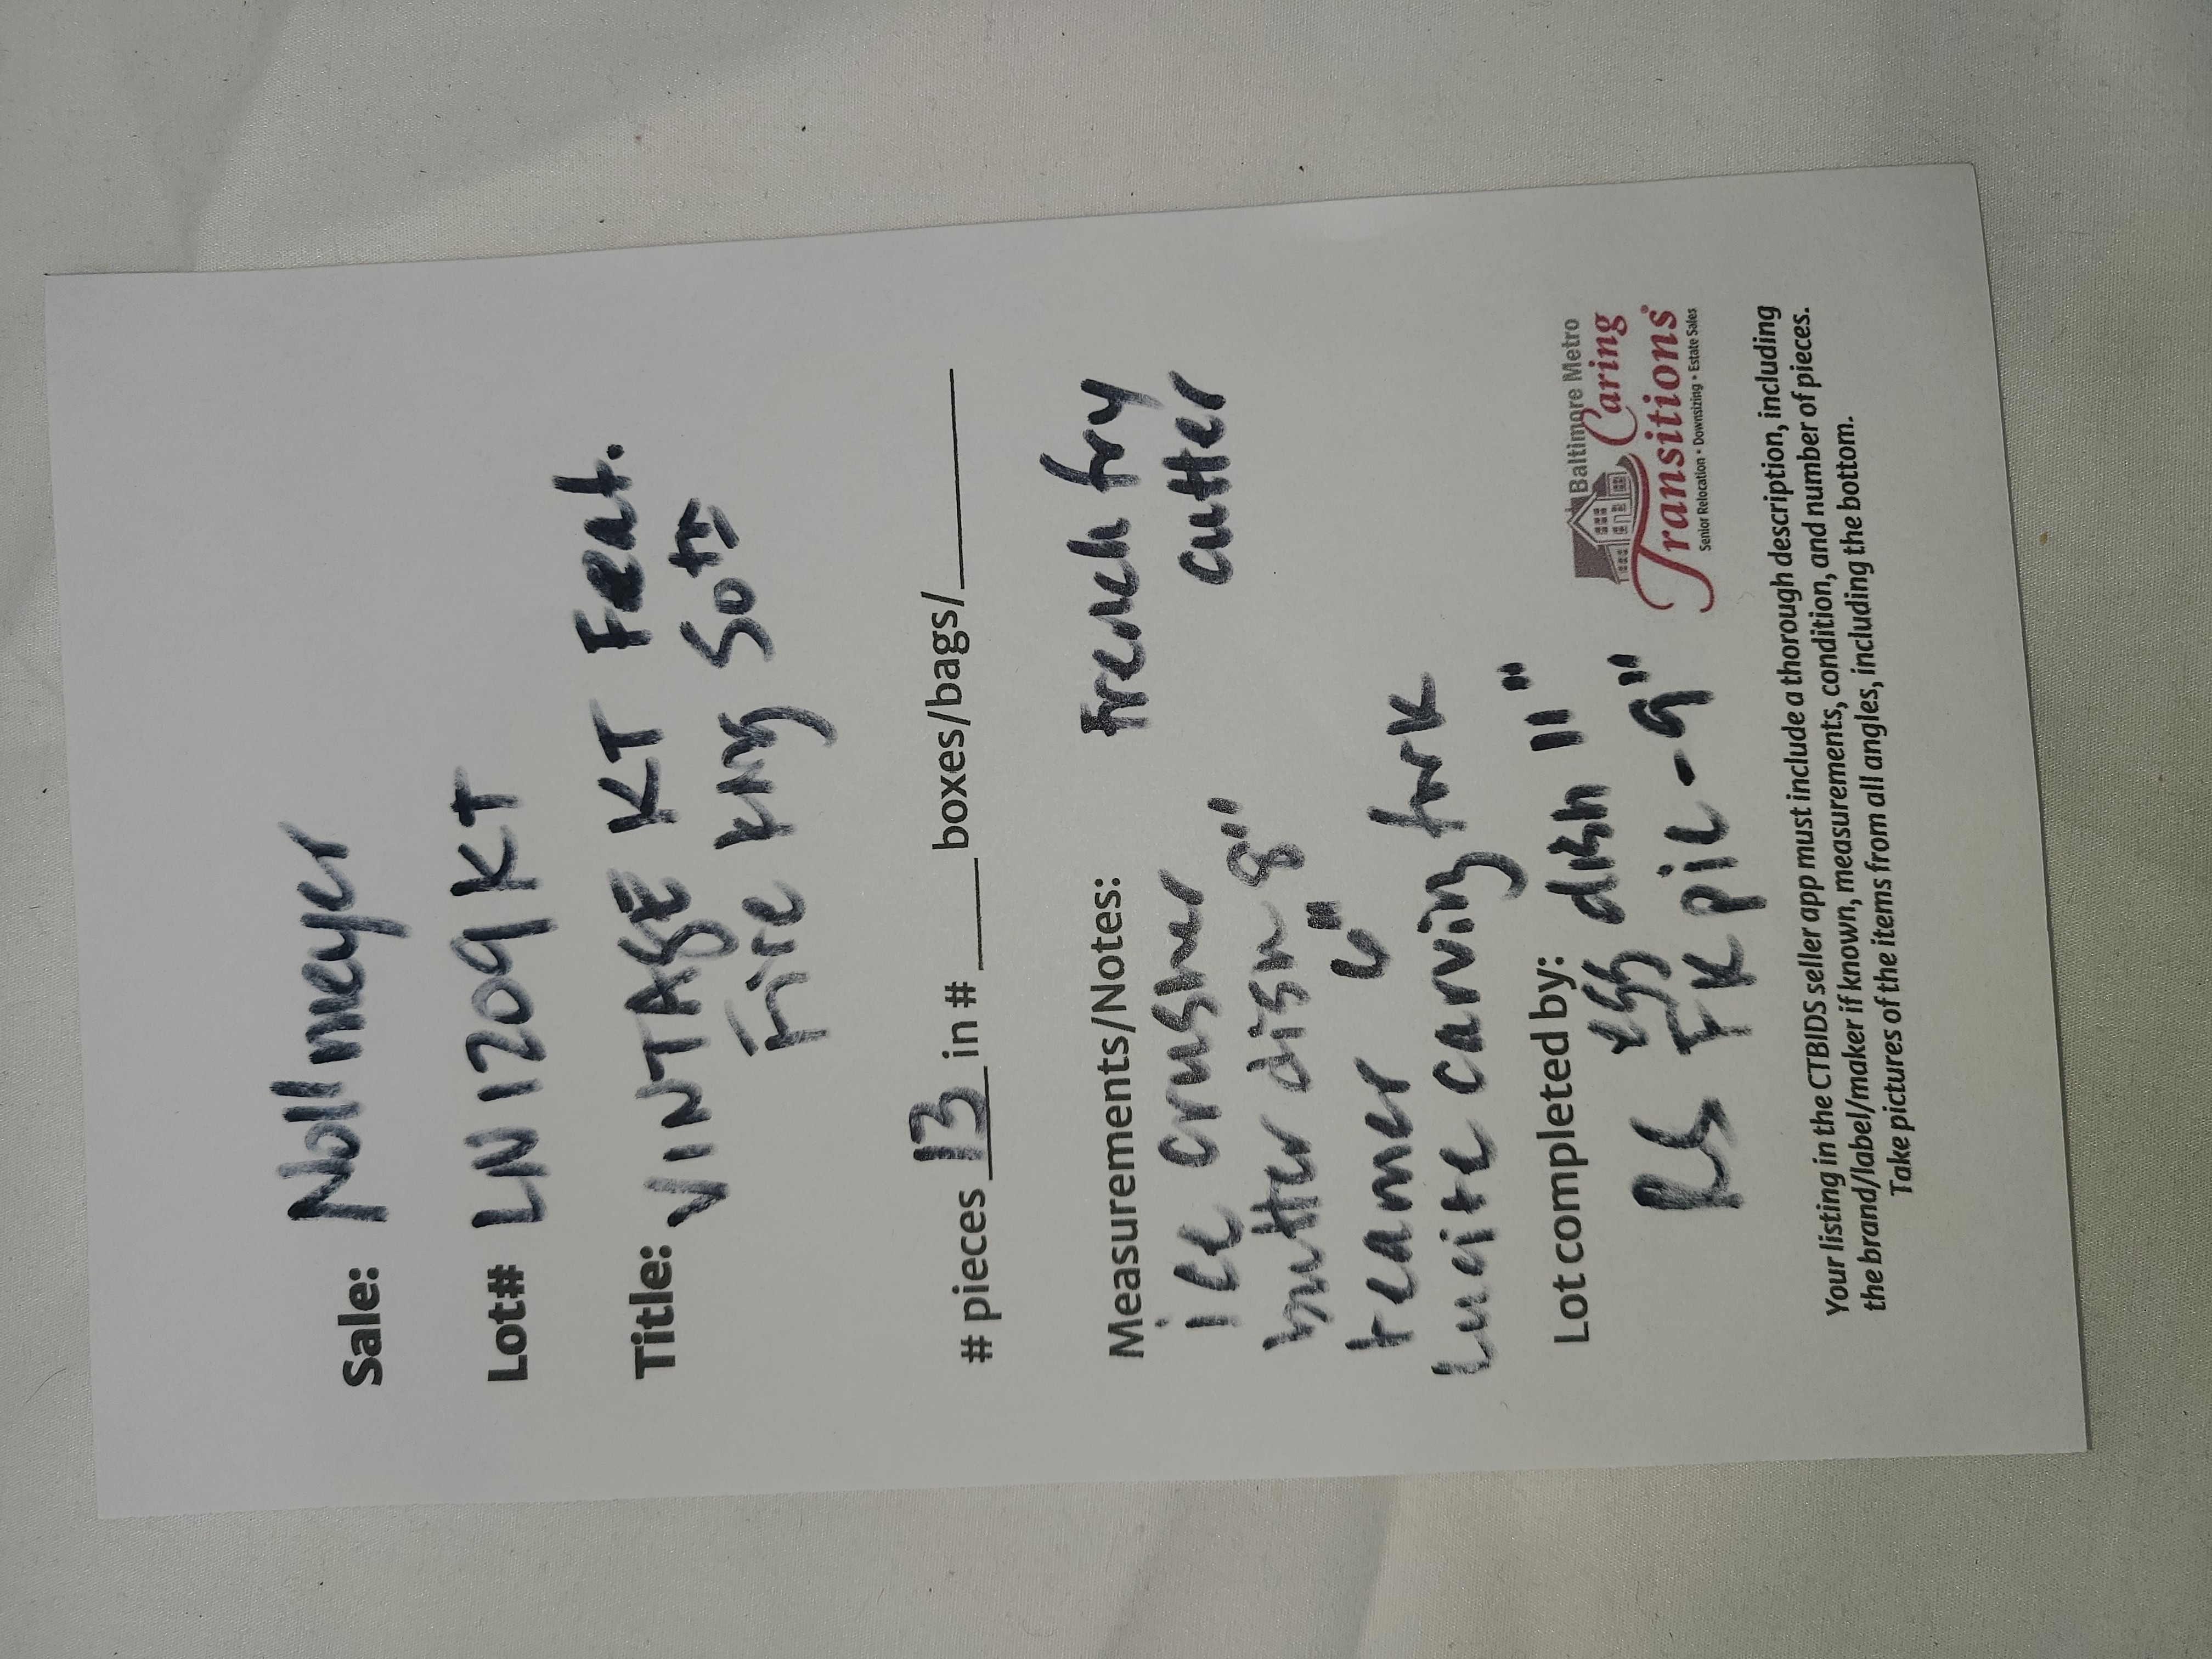 Sale: Nollmeyer
Lot# LN1209KT
Title: VINTAGE KT Feat.
Fire King
# pieces 13 in # ____ boxes/bags/______
Measurements/Notes:
ice crusher french fry
butter dish 8" cutter
reamer 6"
Lucite carving fork
Lot completed by: egg dish 11"
FK pie - 9"
Baltimore Metro
Caring
Transitions
Senior Relocation • Downsizing • Estate Sales
Your listing in the CTBIDS seller app must include a thorough description, including
the brand/label/maker if known, measurements, condition, and number of pieces.
Take pictures of the items from all angles, including the bottom.